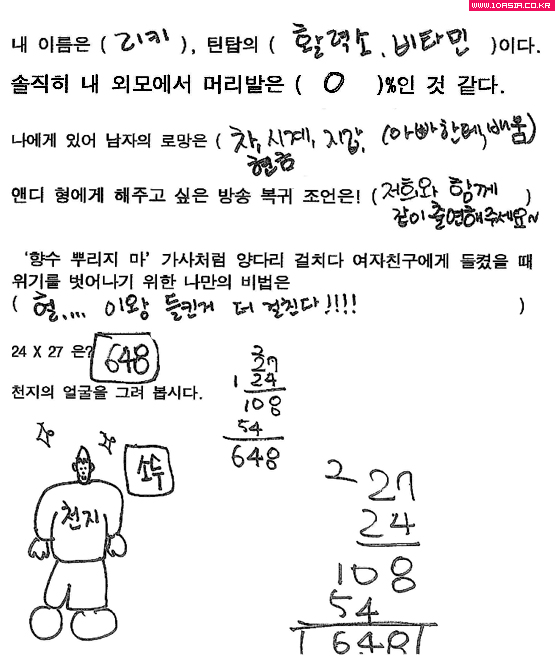 WWW.10ASIA.CO.KR
내 이름은 ( 리키 ), 틴탑의 ( 활력소, 비타민 )이다.
솔직히 내 외모에서 머리발은 ( 0 )%인 것 같다.
나에게 있어 남자의 로망은 ( 차, 시계, 지갑, (아빠한테 배움)
현금
앤디 형에게 해주고 싶은 방송 복귀 조언은! ( 저희와 함께 )
같이 출연해주세요~
‘향수 뿌리지 마’ 가사처럼 양다리 걸치다 여자친구에게 들켰을 때
위기를 벗어나기 위한 나만의 비법은
( 헐.... 이왕 들킨거 더 걸친다!!!! )
24 X 27 은? 648
천지의 얼굴을 그려 봅시다.
2
27
1 24
108
54
648
소수
천지
2 27
24
108
54
648